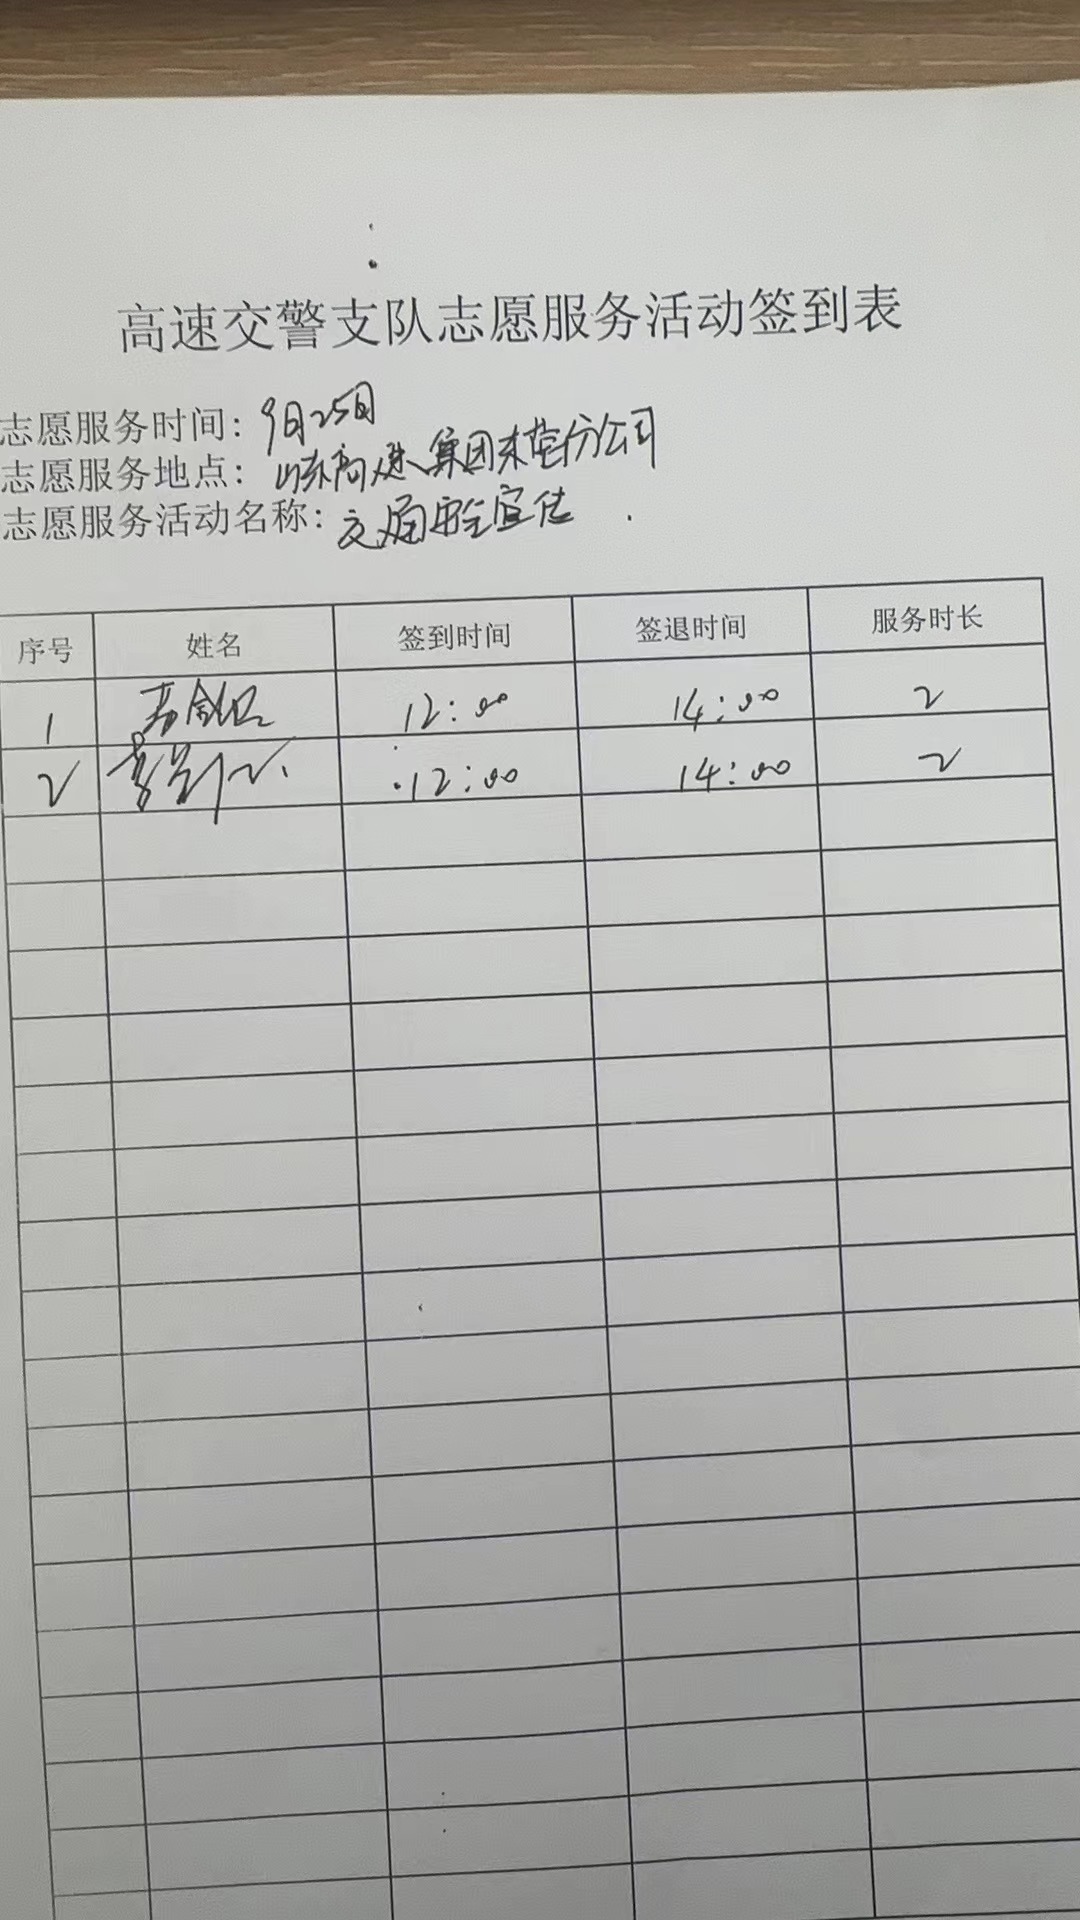 高速交警支队志愿服务活动签到表
志愿服务时间：9月25日
志愿服务地点：山东高速集团东营分公司
志愿服务活动名称：交通安全宣传
序号 姓名 签到时间 签退时间 服务时长
1 12:00 14:00 2
2 12:00 14:00 2